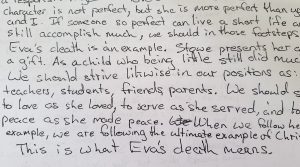 character is not perfect, but she is more perfect than you
and I. If someone so perfect can live a short life a
still accomplish much, we should in those footsteps
Eva's death is an example. Stowe presents her a
a gift. As a child who being little still did muc
We should strive likwise in our positions as:
teachers, students, friends parents. We should s
to love as she loved, to serve as she served, and to
peace as she made peace. When we follow he
example, we are following the ultimate example of Chri
This is what Eva's death means.